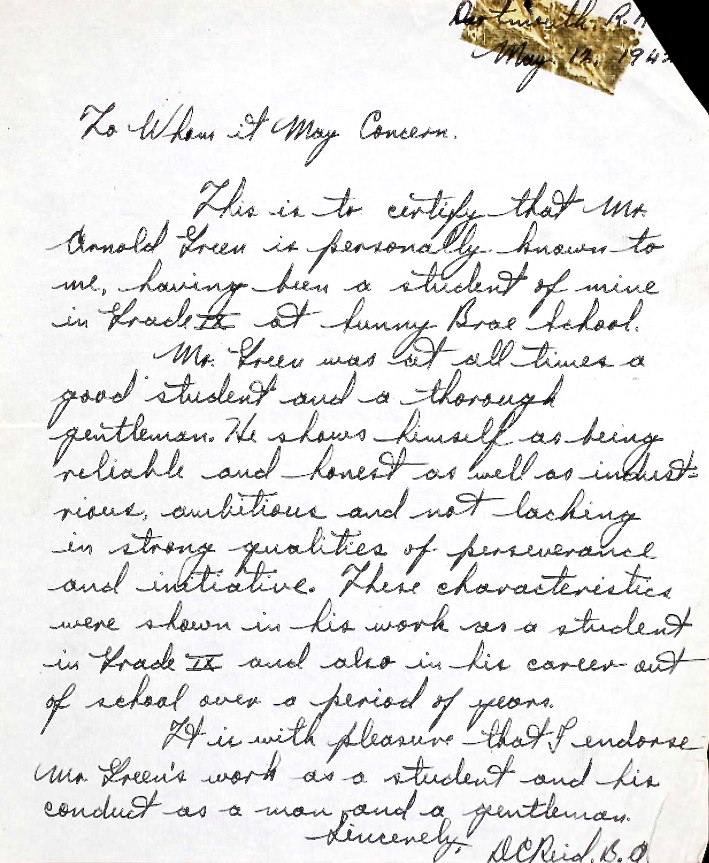 Dartmouth, R.R.
May. 12, 194
To Whom it May Concern.
This is to certify that Mr.
Arnold Green is personally known to
me, having been a student of mine
in Grade IX at Sunny Brae School.
Mr. Green was at all times a
good student and a thorough
gentleman. He shows himself as being
reliable and honest as well as indust-
rious, ambitious and not lacking
in strong qualities of perseverance
and initiative. These characteristics
were shown in his work as a student
in Grade IX and also in his career out
of school over a period of years.
It is with pleasure that I endorse
Mr. Green's work as a student and his
conduct as a man and a gentleman.
Sincerely,
D.C. Reid. B.A